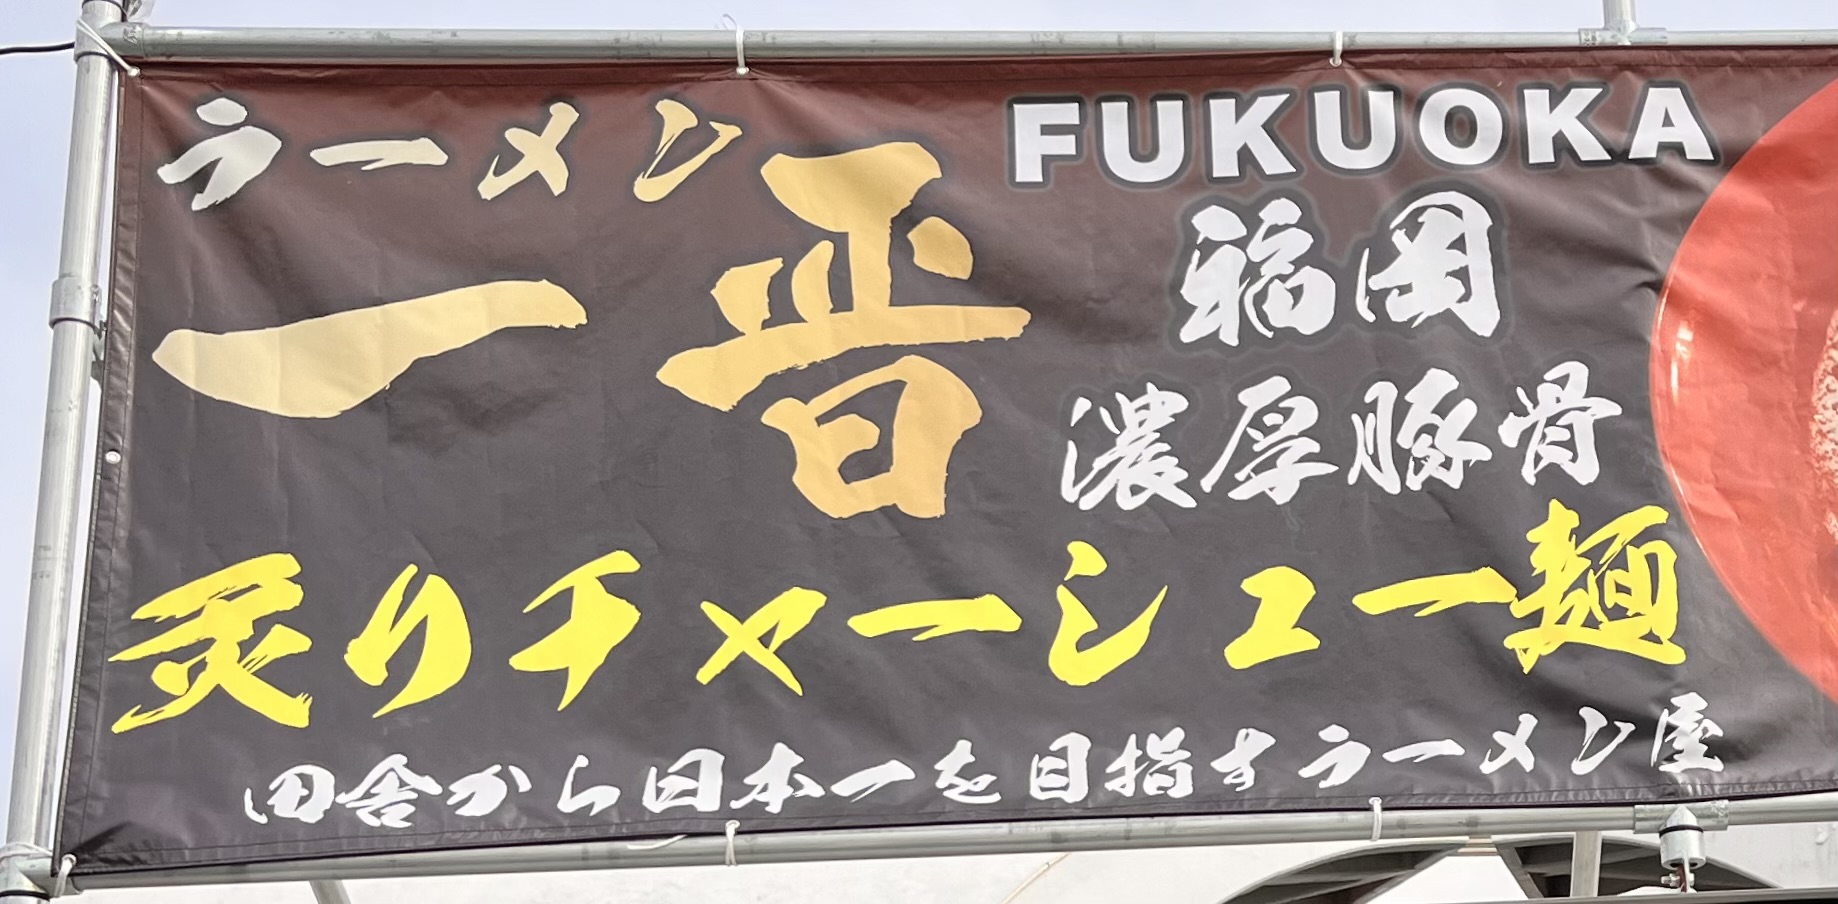 ラーメン
一晋
FUKUOKA
福岡
濃厚豚骨
炙りチャーシュー麺
田舎から日本一を目指すラーメン屋